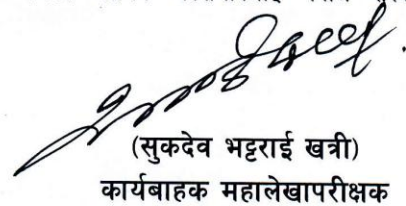 (सुकदेव भट्टराई खत्री)
कार्यबाहक महालेखापरीक्षक